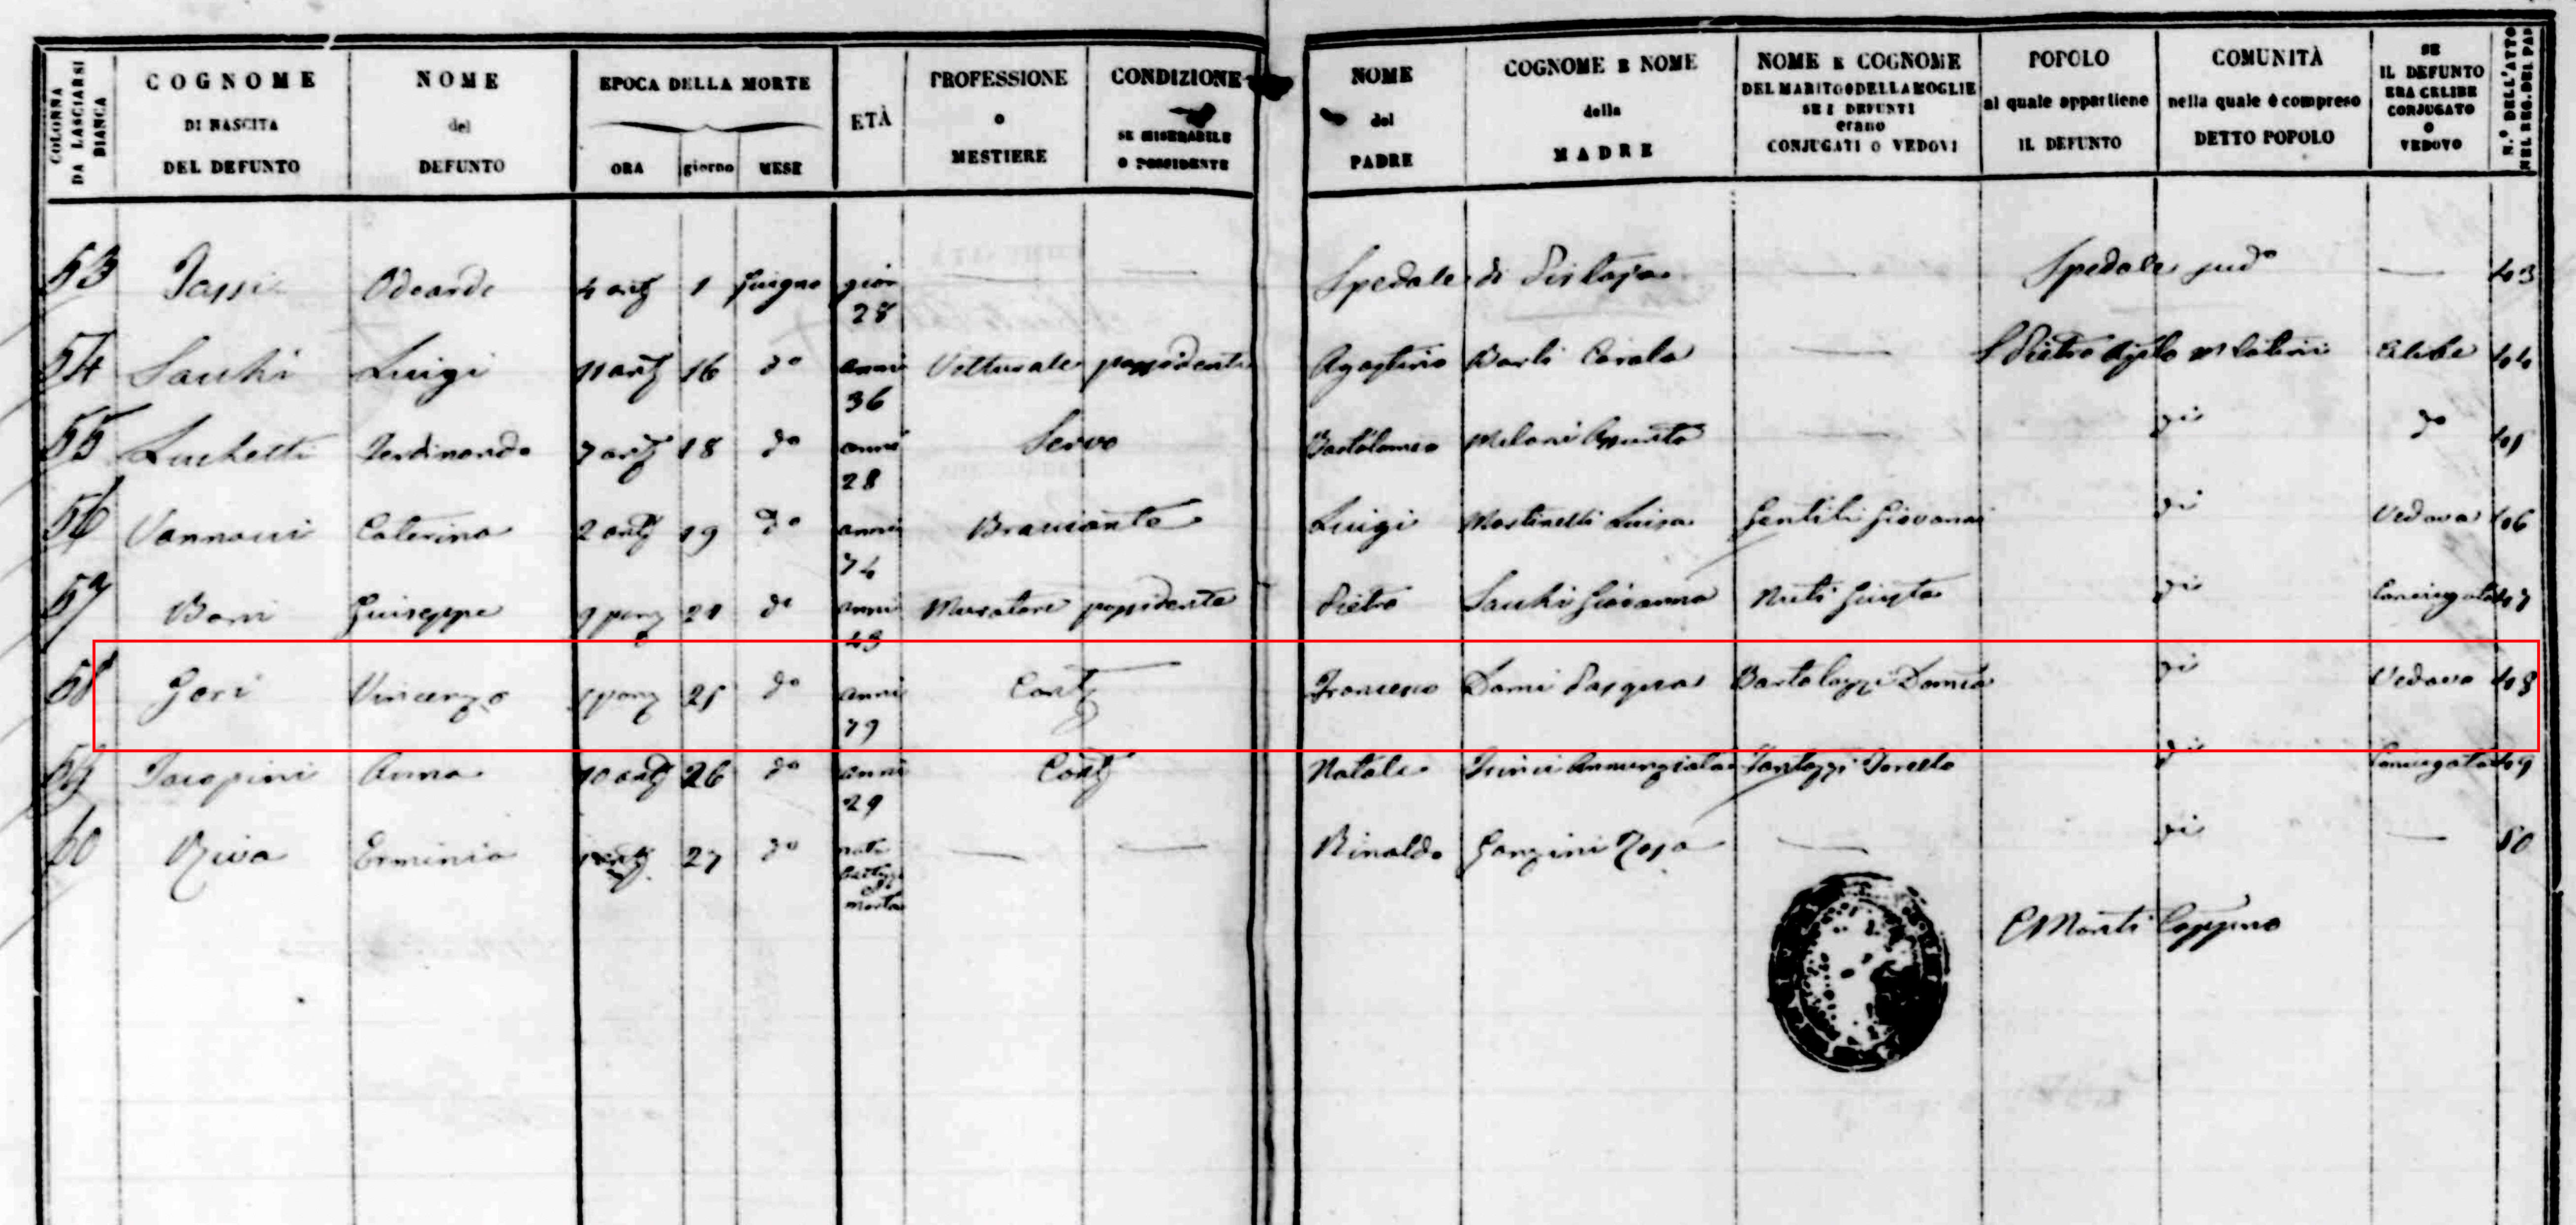 COLONNA DA LASCIARSI BIANCA
COGNOME DI NASCITA DEL DEFUNTO
NOME del DEFUNTO
EPOCA DELLA MORTE
ORA giorno MESE
ETÀ
PROFESSIONE o MESTIERE
CONDIZIONE SE MISERABILE O POSSIDENTE
NOME del PADRE
COGNOME E NOME della MADRE
NOME E COGNOME DEL MARITO O DELLA MOGLIE SE I DEFUNTI erano CONJUGATI O VEDOVI
POPOLO al quale appartiene IL DEFUNTO
COMUNITÀ nella quale è compreso DETTO POPOLO
SE IL DEFUNTO ERA CELIBE CONJUGATO O VEDOVO
N.º DELL'ATTO NEL REG. DEL PAR
53 Odoardo 4 antj 1 Giugno gior 28 Spedale di Pistoja Spedale sudº 43
54 Luigi 11 antj 16 dº anni 36 Vetturale possidente Agostino Carola S Pietro Celibe 44
55 Luchetti Ferdinando 7 antj 18 dº anni 28 Servo Bartolomeo Melani Assunta di dº 45
56 Vannucci Caterina 2 antj 19 dº anni 74 Bracciante Luigi Martinelli Luisa Gentili Giovanni di Vedova 46
57 Giuseppe 9 pomj 21 dº anni 43 Muratore possidente Pietro Giovanna di Coniugato 47
58 Gori Vincenzo pomj 25 dº anni 79 Contj Francesco Dami Pasqua Bartolozzi di Vedovo 48
59 Jacopini Anna 10 antj 26 dº anni 29 Contj Natale Annunziata di Coniugata 49
60 Erminia antj 27 dº nata morta Rinaldo Ganzini Rosa di 50
C Monti Cappno